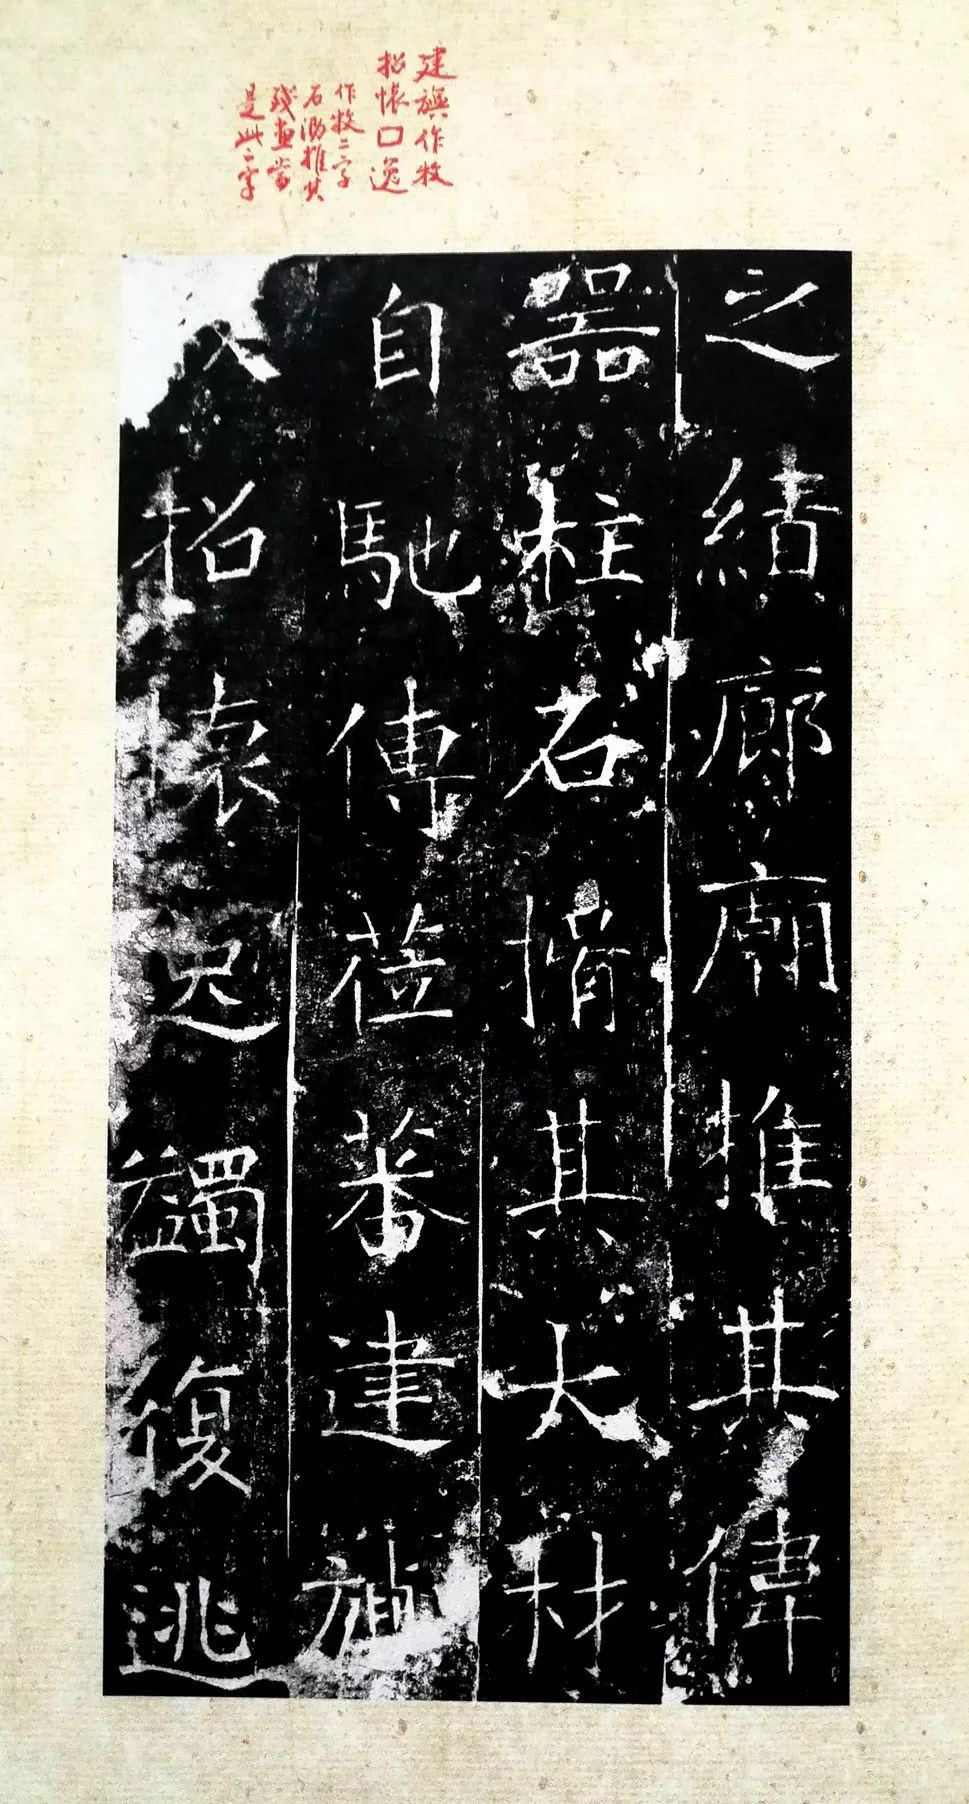 建旟作牧
招懷口逸
作牧二字
石泐推其
殘畫當
是此二字
之績廊廟推其偉
器柱石揖其大材
自馳傳莅蕃建旟
招懷蠲復逃